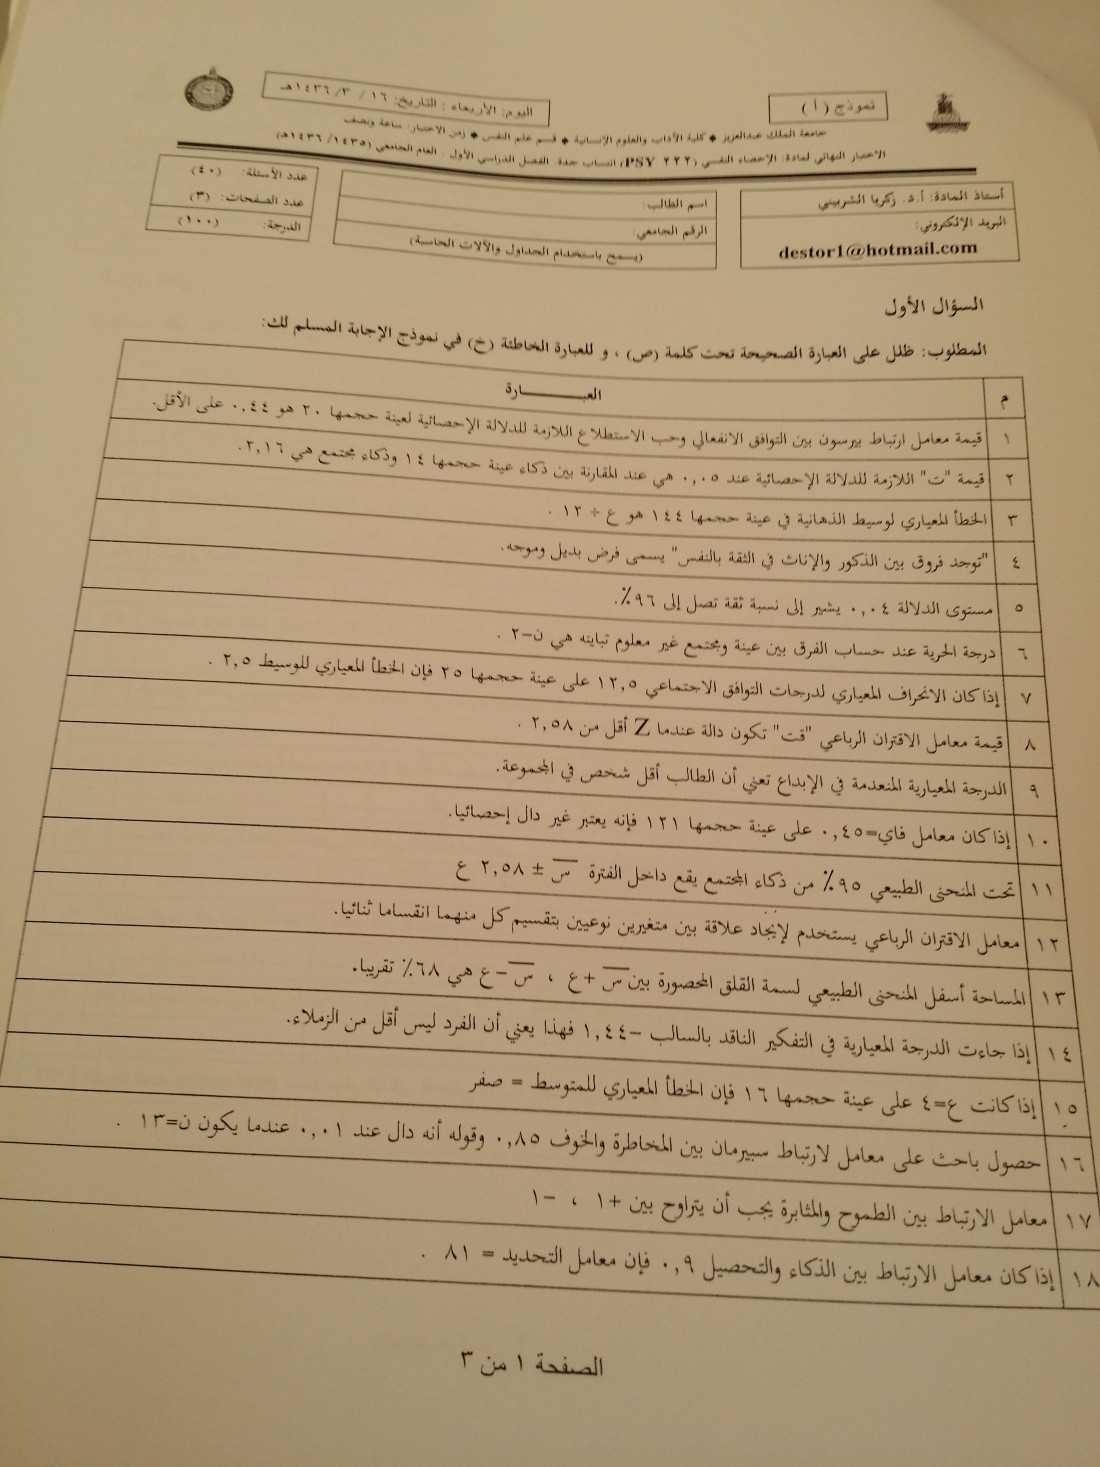 نموذج ( أ )
اليوم: الأربعاء : التاريخ: ١٦ / ٣ / ١٤٣٦هـ
جامعة الملك عبدالعزيز ◆ كلية الآداب والعلوم الإنسانية ◆ قسم علم النفس ◆ زمن الاختبار: ساعة ونصف
الاختبار النهائي لمادة: الإحصاء النفسي (PSY ٢٢٢) انتساب جدة. الفصل الدراسي الأول . العام الجامعي (١٤٣٥/ ١٤٣٦هـ)
أستاذ المادة: أ.د. زكريا الشربيني
البريد الإلكتروني:
destor1@hotmail.com
اسم الطالب:
الرقم الجامعي:
(يسمح باستخدام الجداول والآلات الحاسبة)
عدد الأسئلة: (٤٠)
عدد الصفحات: (٣)
الدرجة: (١٠٠)
السؤال الأول
المطلوب: ظلل على العبارة الصحيحة تحت كلمة (ص) ، و للعبارة الخاطئة (خ) في نموذج الإجابة المسلم لك:
م العبـــــــــارة
١ قيمة معامل ارتباط بيرسون بين التوافق الانفعالي وحب الاستطلاع اللازمة للدلالة الإحصائية لعينة حجمها ٢٠ هو ٠,٤٤ على الأقل.
٢ قيمة "ت" اللازمة للدلالة الإحصائية عند ٠,٠٥ هي عند المقارنة بين ذكاء عينة حجمها ١٤ وذكاء مجتمع هي ٢,١٦.
٣ الخطأ المعياري لوسيط الذهانية في عينة حجمها ١٤٤ هو ع ÷ ١٢ .
٤ "توجد فروق بين الذكور والإناث في الثقة بالنفس" يسمى فرض بديل وموجه.
٥ مستوى الدلالة ٠,٠٤ يشير إلى نسبة ثقة تصل إلى ٩٦٪.
٦ درجة الحرية عند حساب الفرق بين عينة ومجتمع غير معلوم تباينه هي ن-٢ .
٧ إذا كان الانحراف المعياري لدرجات التوافق الاجتماعي ١٢,٥ على عينة حجمها ٢٥ فإن الخطأ المعياري للوسيط ٢,٥ .
٨ قيمة معامل الاقتران الرباعي "قت" تكون دالة عندما Z أقل من ٢,٥٨ .
٩ الدرجة المعيارية المنعدمة في الإبداع تعني أن الطالب أقل شخص في المجموعة.
١٠ إذا كان معامل فاي=٠,٤٥ على عينة حجمها ١٢١ فإنه يعتبر غير دال إحصائيا.
١١ تحت المنحنى الطبيعي ٩٥٪ من ذكاء المجتمع يقع داخل الفترة س̄ ± ٢,٥٨ ع
١٢ معامل الاقتران الرباعي يستخدم لإيجاد علاقة بين متغيرين نوعيين بتقسيم كل منهما انقساما ثنائيا.
١٣ المساحة أسفل المنحنى الطبيعي لسمة القلق المحصورة بين س̄ +ع ، س̄ -ع هي ٦٨٪ تقريبا.
١٤ إذا جاءت الدرجة المعيارية في التفكير الناقد بالسالب -١,٤٤ فهذا يعني أن الفرد ليس أقل من الزملاء.
١٥ إذا كانت ع=٤ على عينة حجمها ١٦ فإن الخطأ المعياري للمتوسط = صفر
١٦ حصول باحث على معامل لارتباط سبيرمان بين المخاطرة والخوف ٠,٨٥ وقوله أنه دال عند ٠,٠١ عندما يكون ن=١٣ .
١٧ معامل الارتباط بين الطموح والمثابرة يجب أن يتراوح بين +١ ، -١
١٨ إذا كان معامل الارتباط بين الذكاء والتحصيل ٠,٩ فإن معامل التحديد = ٨١ .
الصفحة ١ من ٣